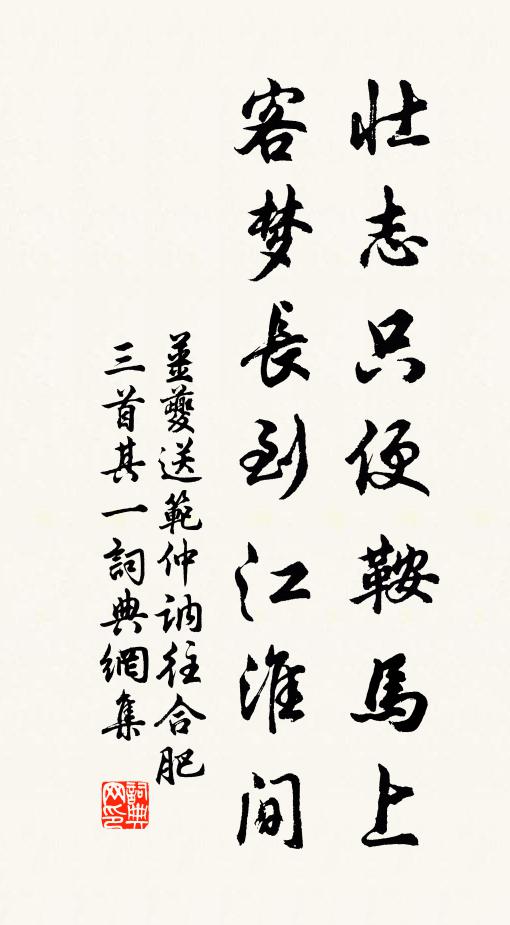 壮志只便鞍馬上
客梦長到江淮間
姜夔送範仲訥往合肥
三首其一詞典網集
詞典网印